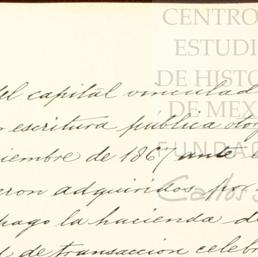 CENTRO
ESTUDI
DE HISTO
DE MEX
FUNDA
Carlos
del capital vinculad
escritura pública oto
iembre de 1867 ante e
eron adquiridos por
pago la hacienda d
de transaccion celebr